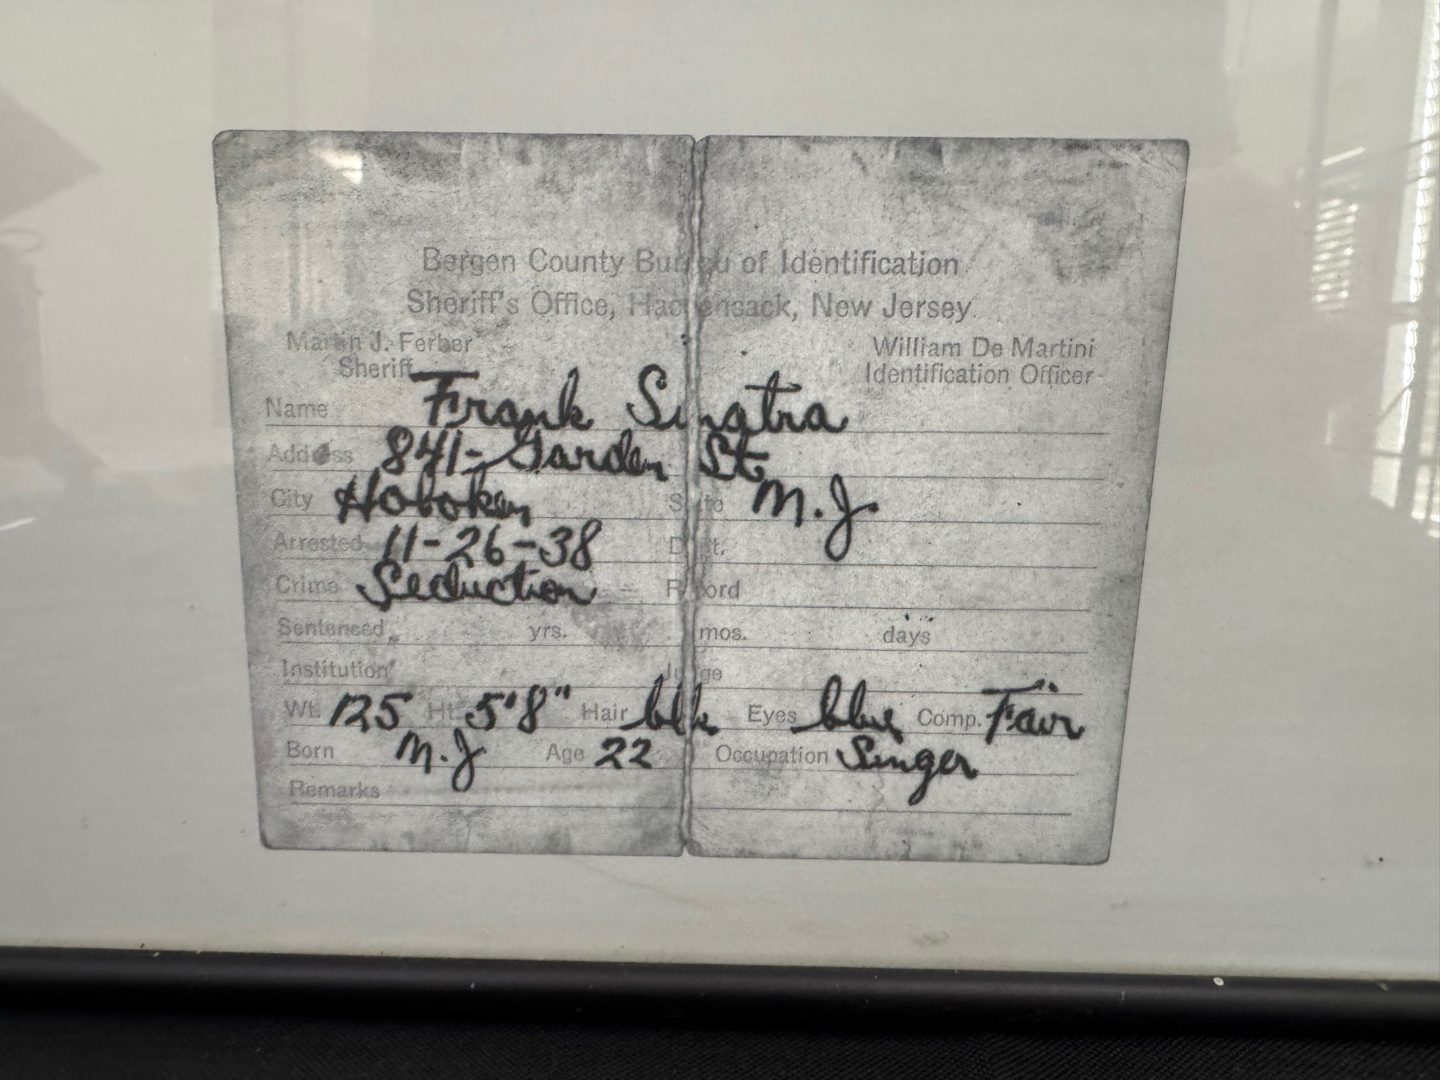 Bergen County Bureau of Identification
Sheriff's Office, Hackensack, New Jersey.
Martin J. Ferber William De Martini
Sheriff Identification Officer
Name Frank Sinatra
Address 841-Garden St
City Hoboken State N.J.
Arrested 11-26-38 Dept.
Crime Seduction Record
Sentenced yrs. mos. days
Institution Judge
Wt. 125 Ht. 5'8" Hair blk Eyes blue Comp. Fair
Born N.J Age 22 Occupation Singer
Remarks